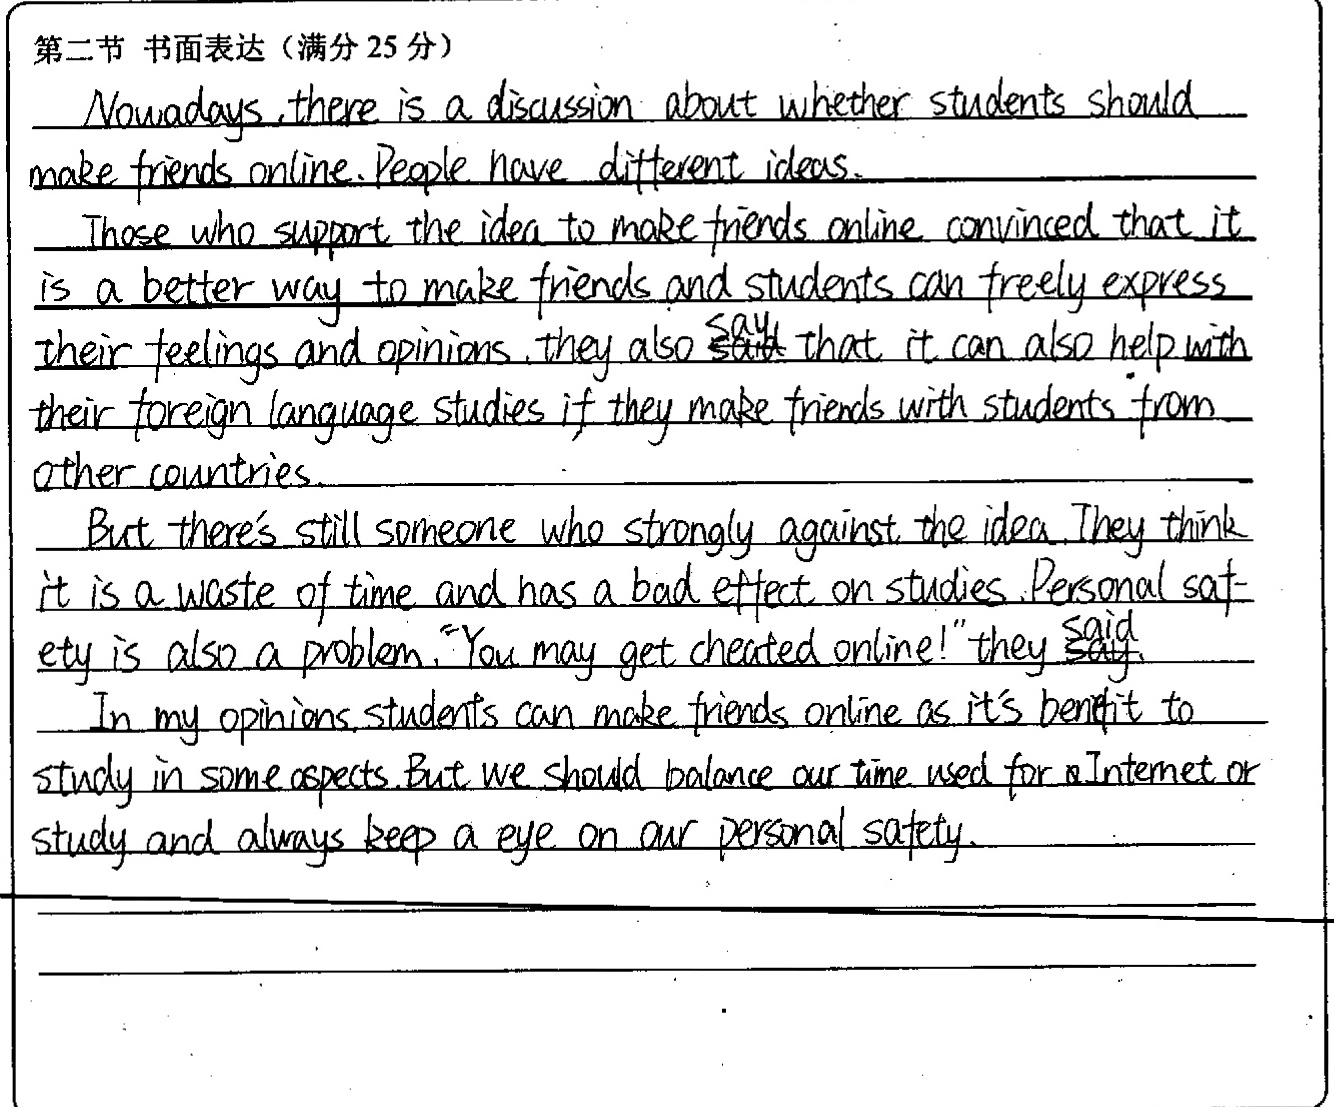 第二节 书面表达（满分 25 分）
Nowadays, there is a discussion about whether students should
make friends online. People have different ideas.
Those who support the idea to make friends online convinced that it
is a better way to make friends and students can freely express
their feelings and opinions, they also say that it can also help with
their foreign language studies if they make friends with students from
other countries.
But there's still someone who strongly against the idea. They think
it is a waste of time and has a bad effect on studies. Personal saf-
ety is also a problem. "You may get cheated online!" they said.
In my opinions, students can make friends online as it's benifit to
study in some aspects. But we should balance our time used for Internet or
study and always keep a eye on our personal safety.